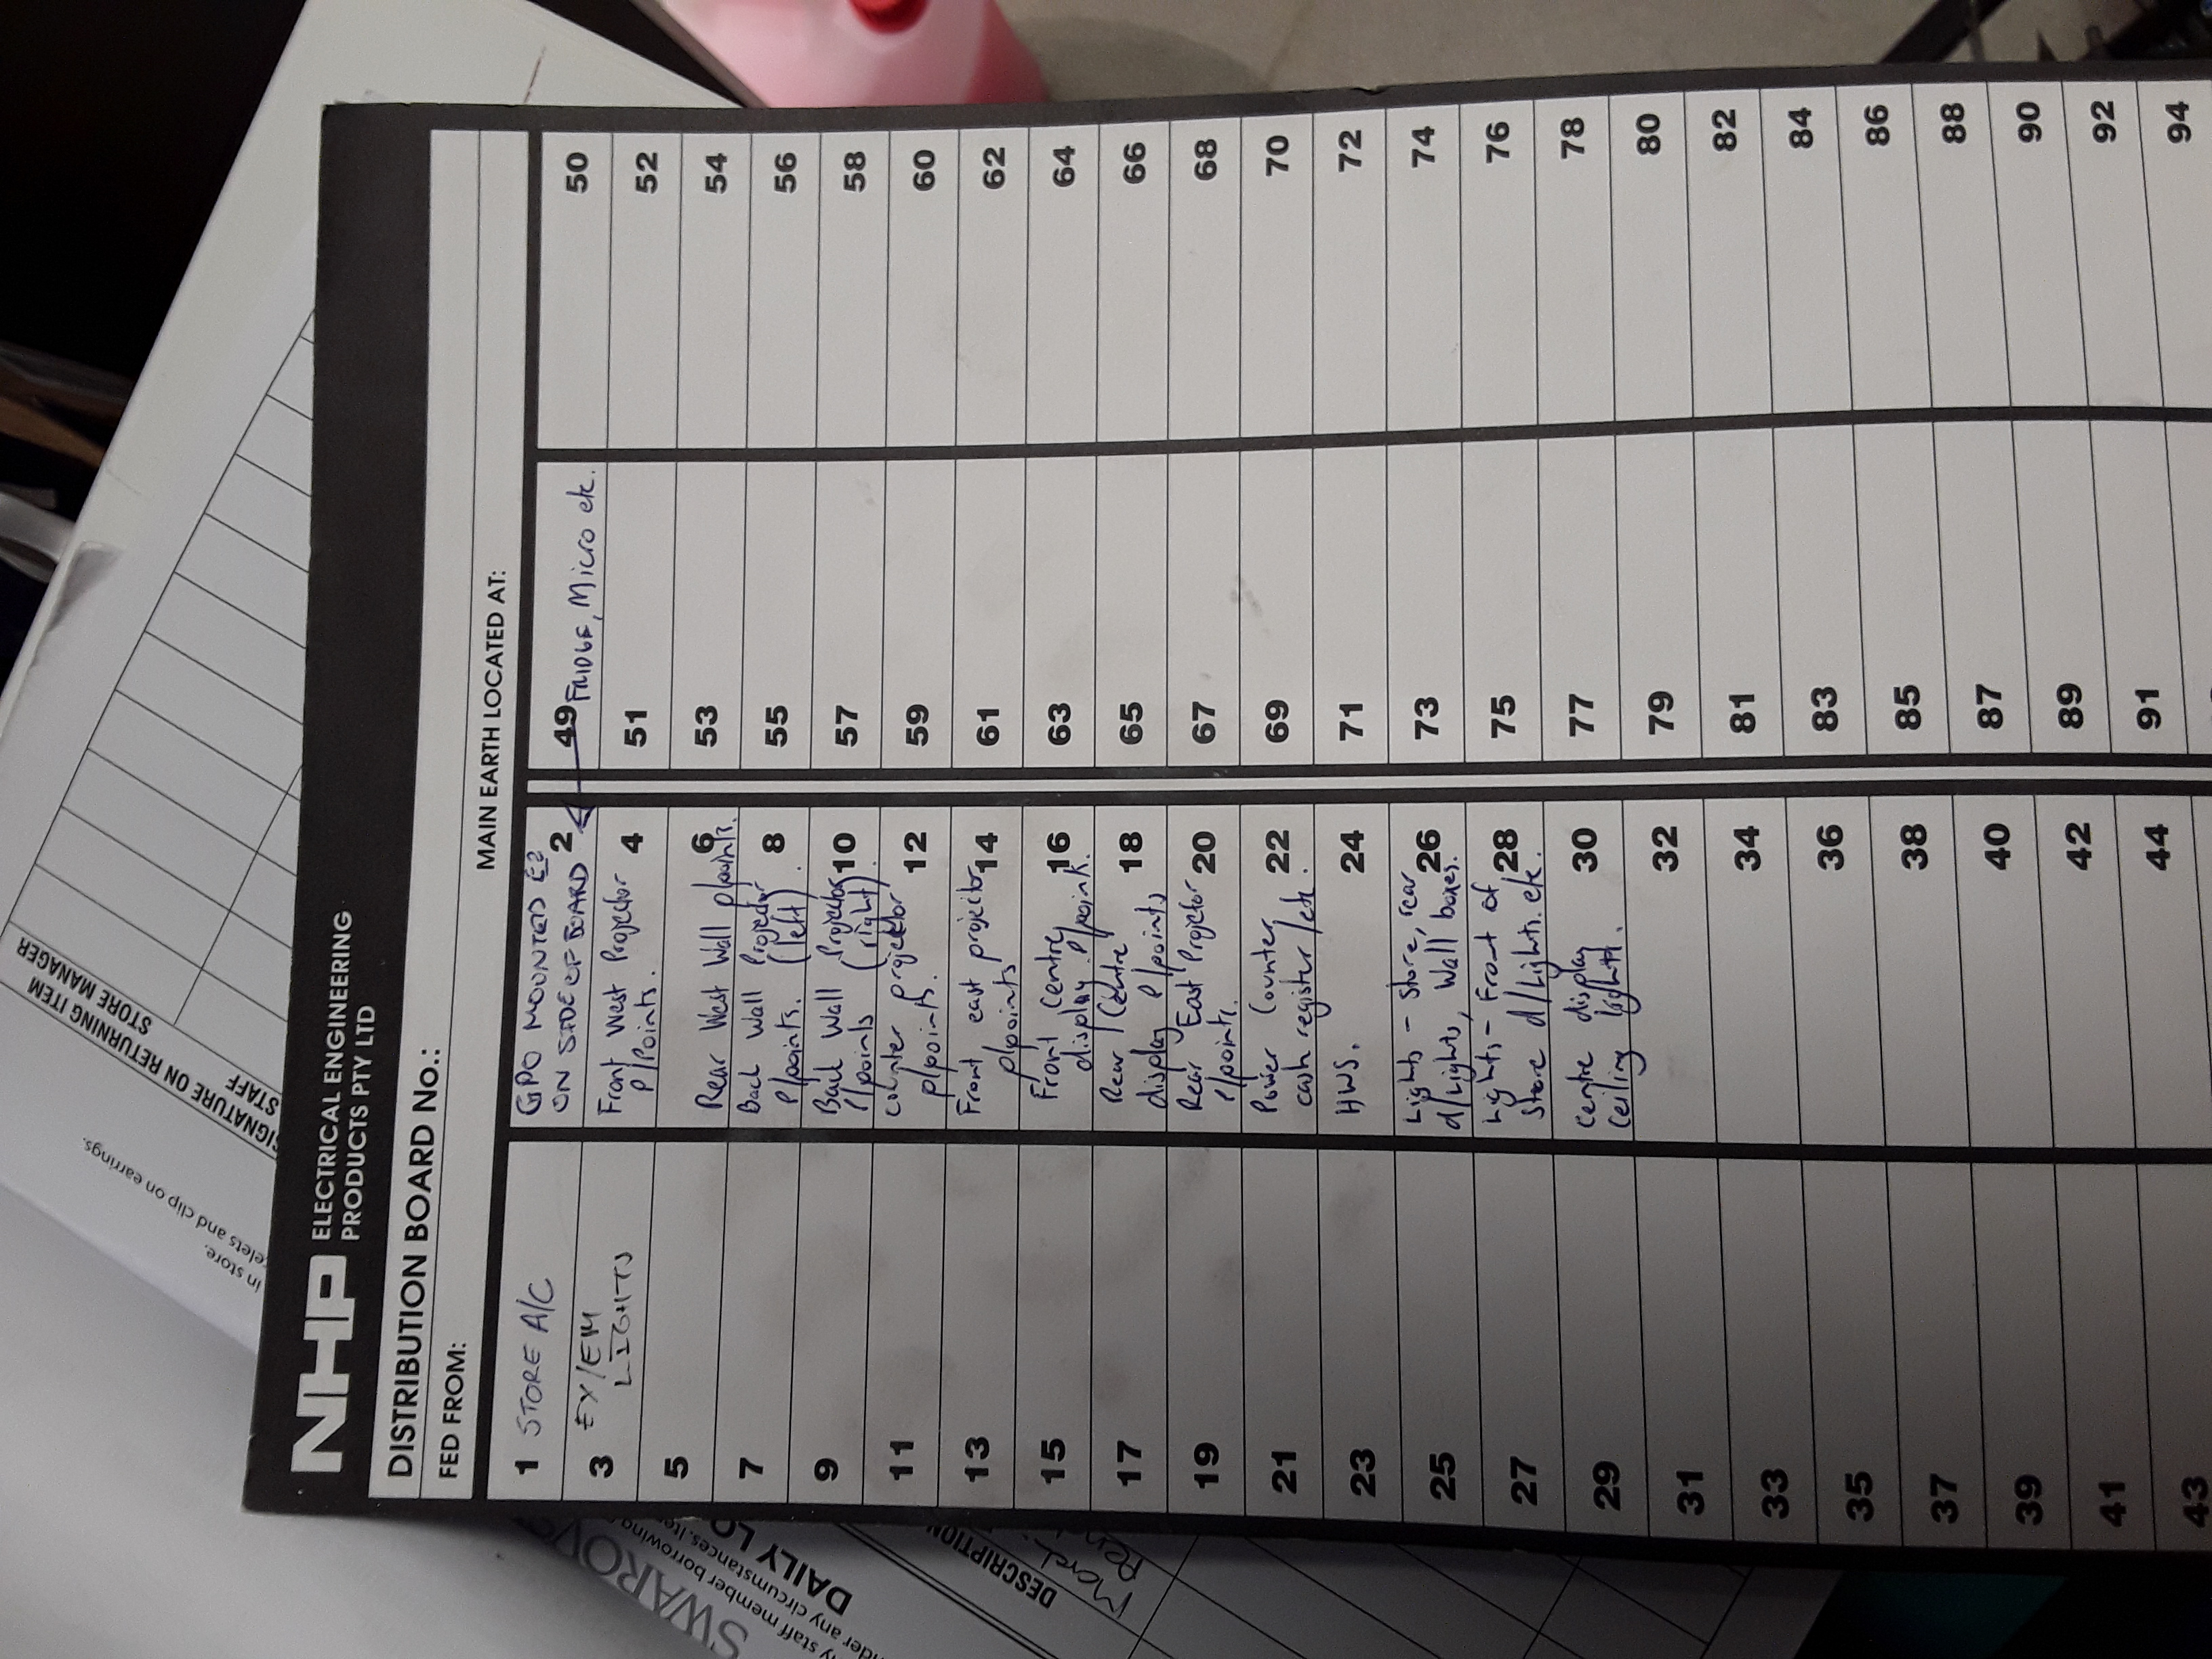 NHP
ELECTRICAL ENGINEERING
PRODUCTS PTY LTD
DISTRIBUTION BOARD No.:
FED FROM:
MAIN EARTH LOCATED AT:
1 STORE A/C
GPO MOUNTED
ON SIDE OF BOARD 2
49 FRIDGE, Micro etc.
50
3 EX/EM
LIGHTS
Front West Projector 4
P/Points.
51
52
5
Rear West Wall p/points. 6
53
54
7
Back Wall Projector 8
p/points. (left).
55
56
9
Back Wall Projector 10
p/points (right).
57
58
11
counter projector 12
p/points.
59
60
13
Front east projector 14
p/points
61
62
15
Front Centre 16
display p/point.
63
64
17
Rear / Centre 18
display p/points
65
66
19
Rear East Projector 20
p/points.
67
68
21
Power Counter 22
cash register/etc.
69
70
23
HWS. 24
71
72
25
Lights - Store, rear 26
d/Lights, Wall boxes.
73
74
27
Lights - Front of 28
Store d/Lights. etc.
75
76
29
Centre display 30
Ceiling lights.
77
78
31
32
79
80
33
34
81
82
35
36
83
84
37
38
85
86
39
40
87
88
41
42
89
90
43
44
91
92
94
SIGNATURE ON RETURNING ITEM
STAFF
STORE MANAGER
elets and clip on earrings.
in store.
SWAROV
DAILY LO
y staff member borrowing
nder any circumstances. Ite
DESCRIPTION